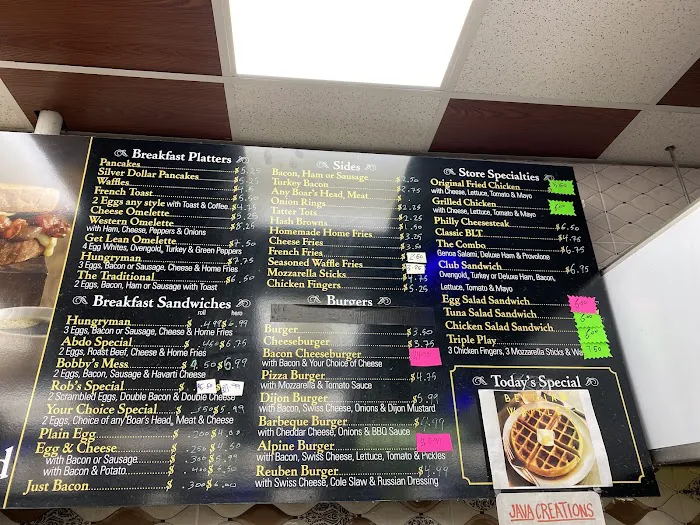 Breakfast Platters
Pancakes $5.25
Silver Dollar Pancakes $5.25
Waffles
French Toast
2 Eggs any style with Toast & Coffee $4.25
Cheese Omelette $5.25
Western Omelette $5.25
with Ham, Cheese, Peppers & Onions
Get Lean Omelette $7.50
4 Egg Whites, Ovengold, Turkey & Green Peppers
Hungryman $7.75
3 Eggs, Bacon or Sausage, Cheese & Home Fries
The Traditional $6.50
2 Eggs, Bacon, Ham or Sausage with Toast
Breakfast Sandwiches
roll hero
Hungryman $6.99
3 Eggs, Bacon or Sausage, Cheese & Home Fries
Abdo Special $6.75
2 Eggs, Roast Beef, Cheese & Home Fries
Bobby's Mess $4.50 $6.99
2 Eggs, Bacon, Sausage & Havarti Cheese
Rob's Special
2 Scrambled Eggs, Double Bacon & Double Cheese
Your Choice Special $5.99
2 Eggs, Choice of any Boar's Head, Meat & Cheese
Plain Egg
Egg & Cheese $4.50
with Bacon or Sausage $5.99
with Bacon & Potato
Just Bacon
Sides
Bacon, Ham or Sausage $2.50
Turkey Bacon $2.75
Any Boar's Head, Meat
Onion Rings
Tatter Tots $2.25
Hash Browns
Homemade Home Fries $3.25
Cheese Fries
French Fries
Seasoned Waffle Fries
Mozzarella Sticks $4.75
Chicken Fingers $5.25
Burgers
Burger $3.50
Cheeseburger $3.75
Bacon Cheeseburger
with Bacon & Your Choice of Cheese
Pizza Burger $4.75
with Mozzarella & Tomato Sauce
Dijon Burger $5.99
with Bacon, Swiss Cheese, Onions & Dijon Mustard
Barbeque Burger
with Cheddar Cheese, Onions & BBQ Sauce
Alpine Burger
with Bacon, Swiss Cheese, Lettuce, Tomato & Pickles
Reuben Burger $4.99
with Swiss Cheese, Cole Slaw & Russian Dressing
Store Specialties
Original Fried Chicken
with Cheese, Lettuce, Tomato & Mayo
Grilled Chicken
with Cheese, Lettuce, Tomato & Mayo
Philly Cheesesteak $6.50
Classic BLT $4.75
The Combo $6.75
Genoa Salami, Deluxe Ham & Provolone
Club Sandwich $6.95
Ovengold, Turkey or Deluxe Ham, Bacon,
Lettuce, Tomato & Mayo
Egg Salad Sandwich
Tuna Salad Sandwich
Chicken Salad Sandwich
Triple Play 7.50
3 Chicken Fingers, 3 Mozzarella Sticks &
Today's Special
BELGIAN
WAFFLE
JAVA CREATIONS